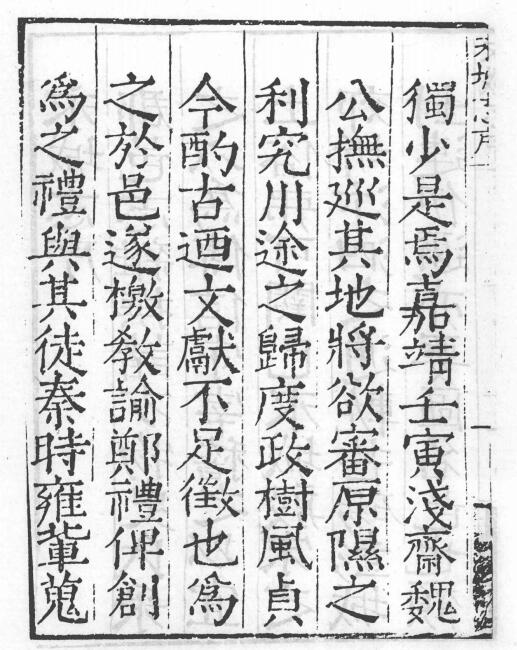 獨少是焉嘉靖壬寅淺齋魏
公撫廵其地將欲審原隰之
利究川途之歸度政樹風貞
今酌古迺文獻不足徵也爲
之於邑遂檄敎諭鄭禮俾創
爲之禮與其徒秦時雍軰蒐